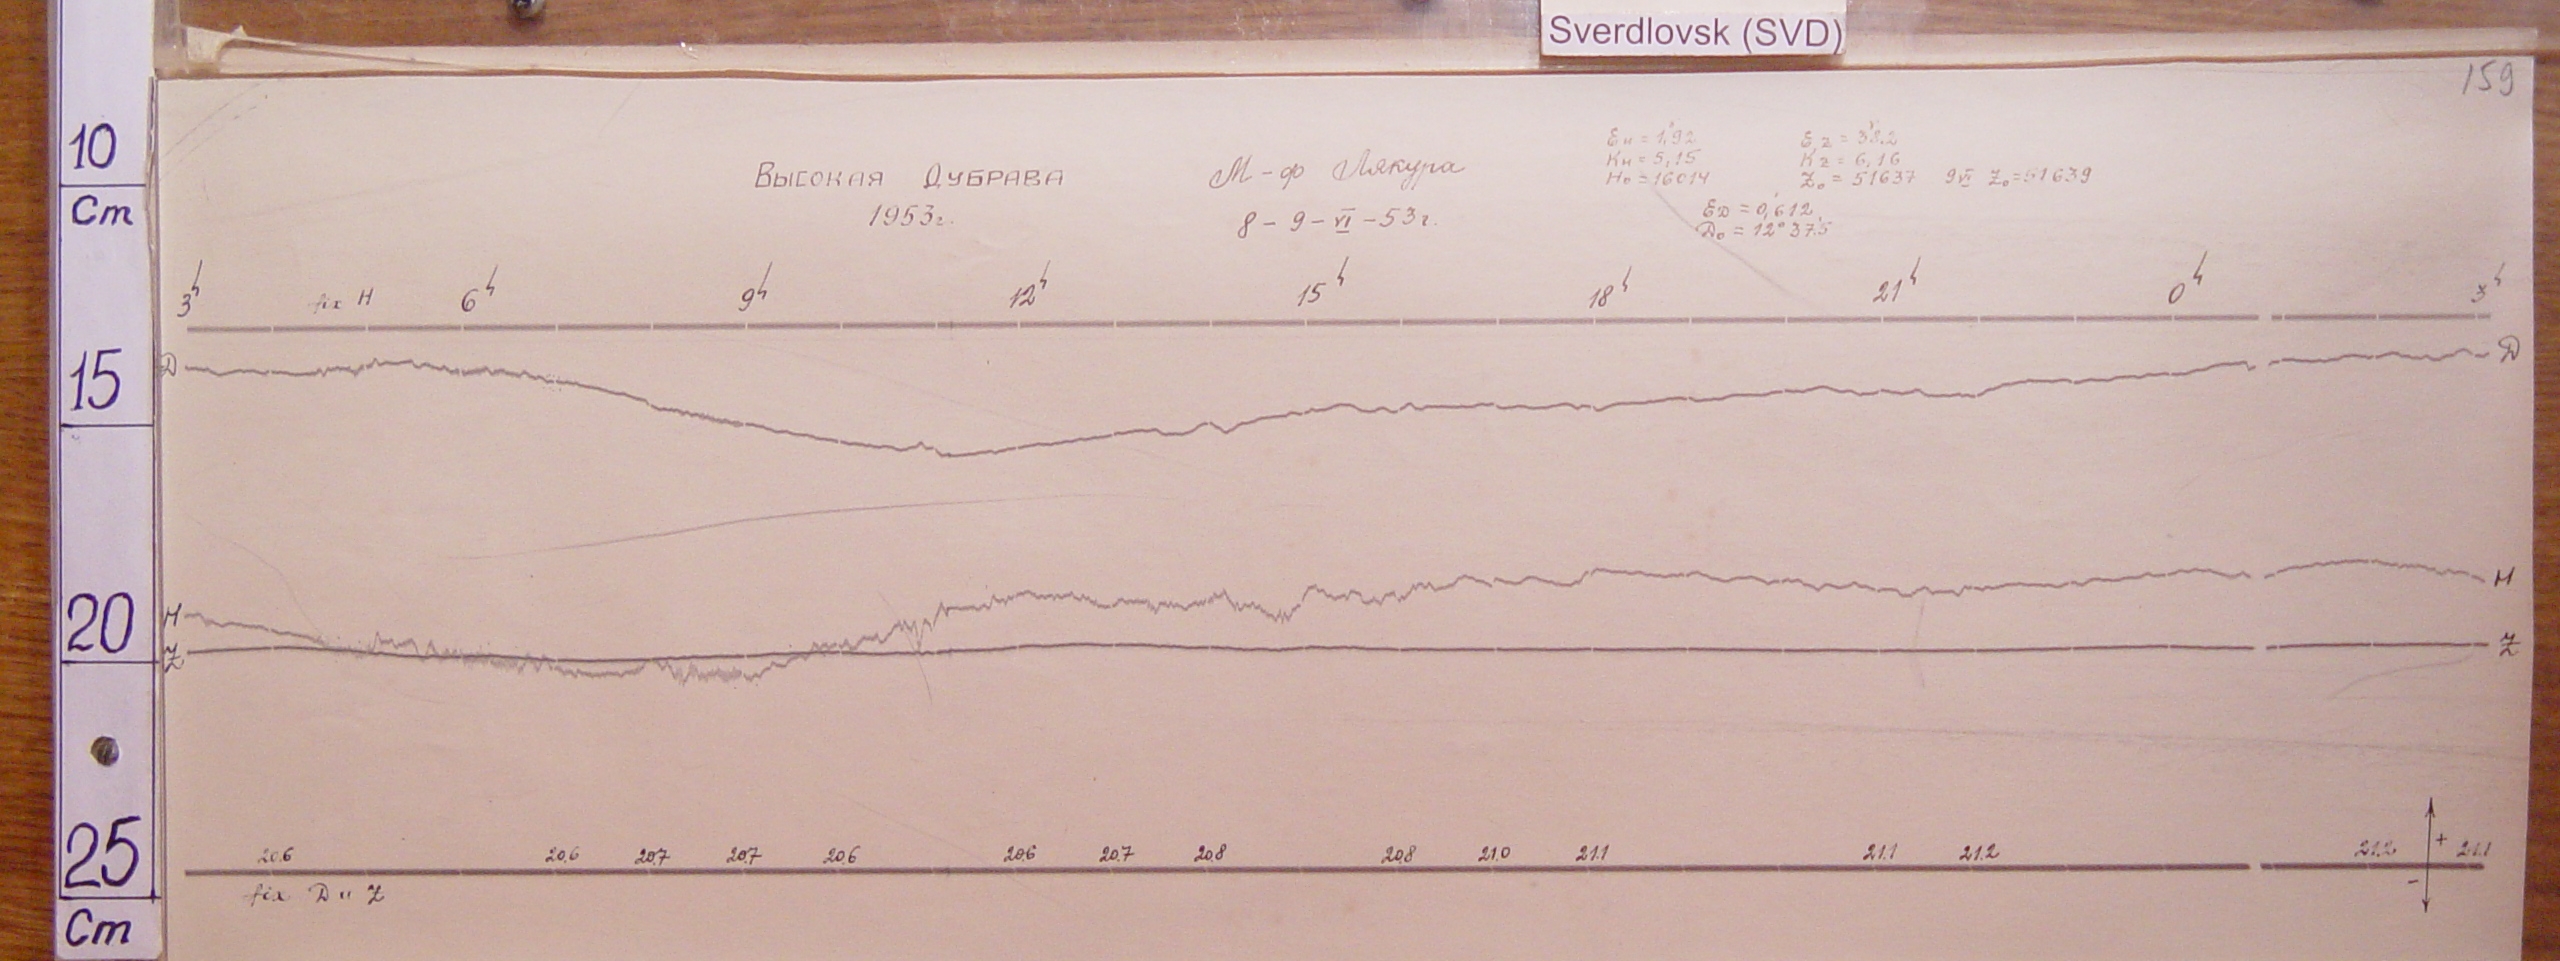 Sverdlovsk (SVD)
159
10
Cm
15
20
25
Cm
Высокая Дубрава
1953г.
М-ф Лякура
8 - 9 - VI - 53г.
Eн = 1,92
Kн = 5,15
H₀ = 16014
Ez = 3,2
Kz = 6,16
Z₀ = 51637 9 VI Z₀ = 51639
ED = 0,612
D₀ = 12° 37.5
3h fix H 6h 9h 12h 15h 18h 21h 0h 3h
D D
H H
Z Z
20.6 20.6 20.7 20.7 20.6 20.6 20.7 20.8 20.8 21.0 21.1 21.1 21.2 21.2 21.1
+
-
fix D и Z